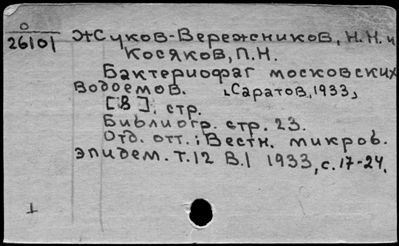 О
26101
Жуков-Вережников, Н.Н. и
Косяков, П.Н.
Бактериофаг московских
водоемов. [Саратов, 1933]
[8] стр.
Библиогр. стр. 23.
Отд. отт.: Вестн. микроб.
эпидем. Т.12 В.1 1933, с. 17-24.